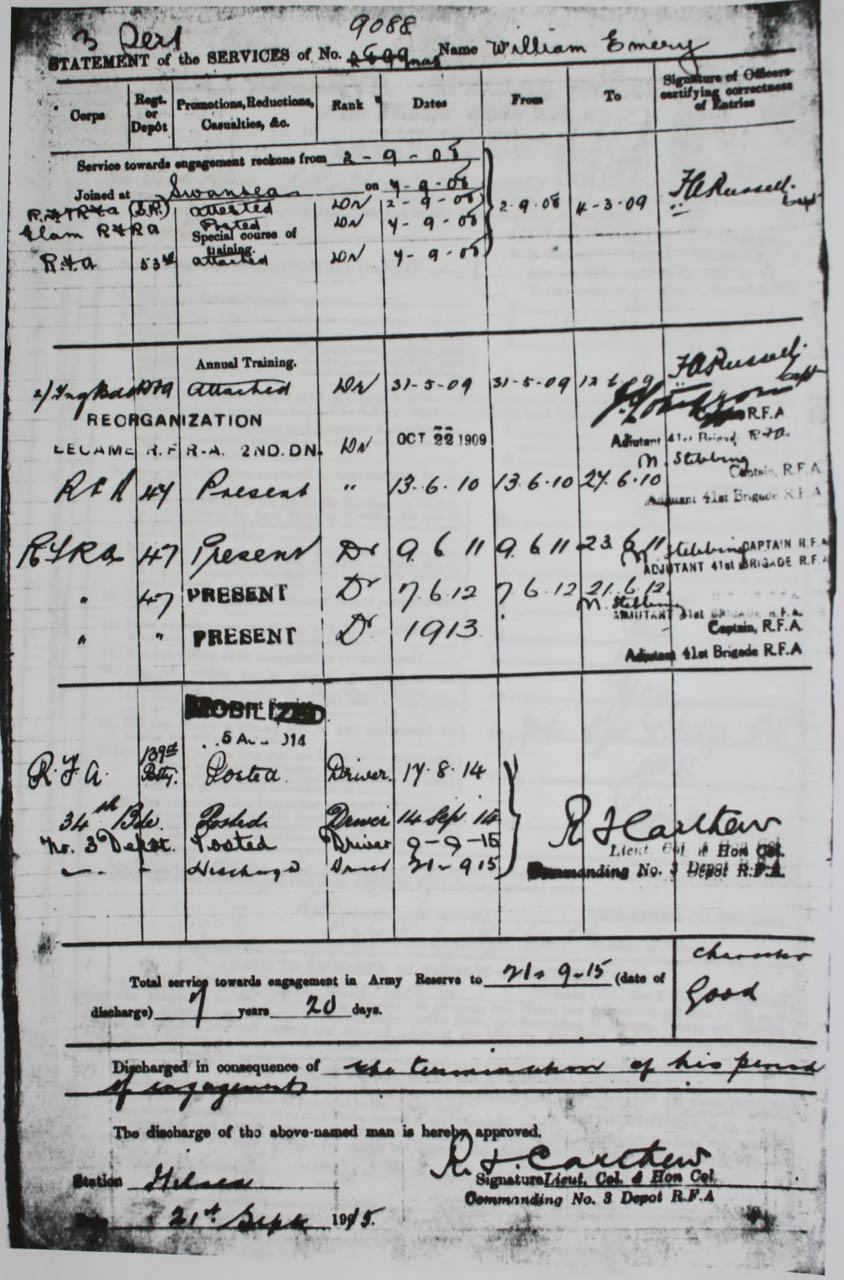 3 Dept 9088
STATEMENT of the SERVICES of No. Name William Emery
Corps Regt. or Depôt Promotions, Reductions, Casualties, &c. Rank Dates From To Signature of Officers certifying correctness of Entries
Service towards engagement reckons from 2-9-08
Joined at Swansea on 7-9-08
(S.R.) attested Dr 2-9-08 2-9-08 4-3-09 F.A.Russell Capt
Glam R.F.R.A Posted Dr 7-9-08
Special course of training.
R.F.A 53rd attached Dr 7-9-08
Annual Training.
attached Dr 31-5-09 31-5-09 12 6 9 F.A.Russell Capt
R.F.A
REORGANIZATION
Adjutant 41st Brigade R.F.A.
BECAME R.F R.A. 2ND. DN. Dr OCT 22 1909
M. Stebbing
Captain, R.F.A
R F A 47 Present " 13.6.10 13.6.10 27.6.10
Adjutant 41st Brigade R.F.A
R.F.R.A 47 Present Dr 9 6 11 9 6 11 23 6 11 M Stebbing CAPTAIN R.F.A
ADJUTANT 41st BRIGADE R.F.A
" 47 PRESENT Dr 7.6.12 7 6 12 21.6.12.
M. Stebbing
ADJUTANT 41st BRIGADE R.F.A.
" " PRESENT Dr 1913.
Captain, R.F.A
Adjutant 41st Brigade R.F.A
MOBILIZED
5 AUG 1914
R.F.A. 139th Batty. Posted. Driver. 17.8.14
34th Bde. Posted Driver 14 Sep 14
No. 3 Depot. Posted Driver 9-9-15
" " Discharged Driver 21-9 15
R F Carthew
Lieut. Col. & Hon Col.
Commanding No. 3 Depot R.F.A.
Character
Good
Total service towards engagement in Army Reserve to 21-9-15 (date of
discharge) 7 years 20 days.
Discharged in consequence of the termination of his period
of engagement
The discharge of the above-named man is hereby approved.
R.F. Carthew
Station Hilsea
Signature Lieut. Col. & Hon Col.
Commanding No. 3 Depot R.F.A
Date 21st Sept 1915.